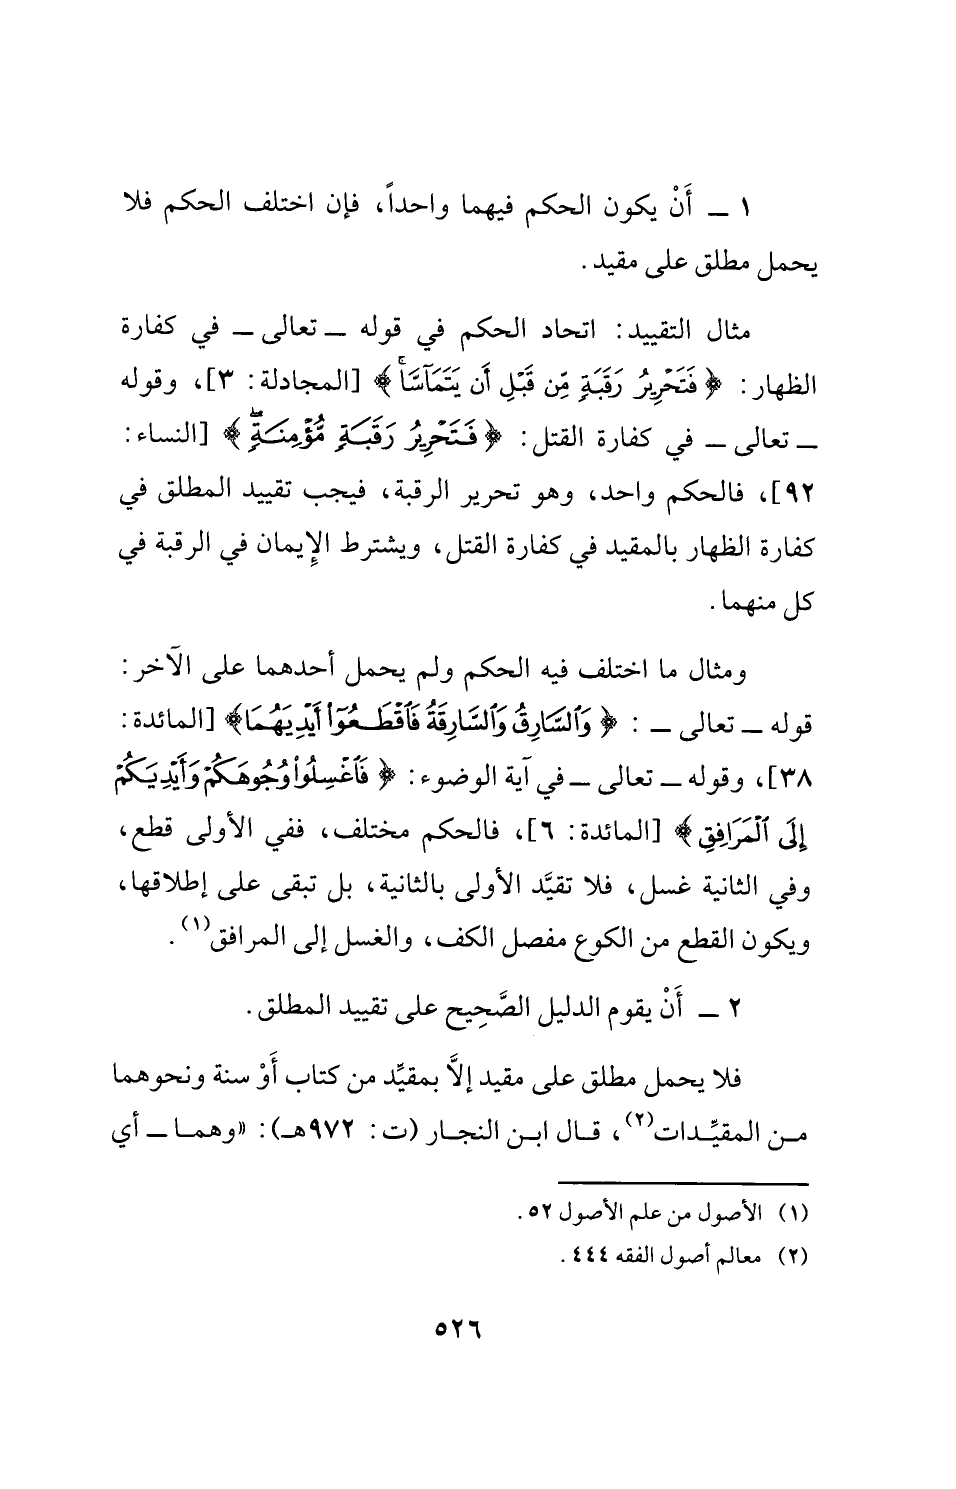 ١ ــ أَنْ يكون الحكم فيهما واحداً، فإن اختلف الحكم فلا
يحمل مطلق على مقيد.
مثال التقييد: اتحاد الحكم في قوله ــ تعالى ــ في كفارة
الظهار: ﴿فَتَحْرِيرُ رَقَبَةٍ مِّن قَبْلِ أَن يَتَمَآسَّاۚ﴾ [المجادلة: ٣]، وقوله
ــ تعالى ــ في كفارة القتل: ﴿فَتَحْرِيرُ رَقَبَةٍ مُّؤْمِنَةٍۖ﴾ [النساء:
٩٢]، فالحكم واحد، وهو تحرير الرقبة، فيجب تقييد المطلق في
كفارة الظهار بالمقيد في كفارة القتل، ويشترط الإِيمان في الرقبة في
كل منهما.
ومثال ما اختلف فيه الحكم ولم يحمل أحدهما على الآخر:
قوله ــ تعالى ــ: ﴿وَٱلسَّارِقُ وَٱلسَّارِقَةُ فَٱقْطَعُوٓاْ أَيْدِيَهُمَا﴾ [المائدة:
٣٨]، وقوله ــ تعالى ــ في آية الوضوء: ﴿فَٱغْسِلُواْ وُجُوهَكُمْ وَأَيْدِيَكُمْ
إِلَى ٱلْمَرَافِقِ﴾ [المائدة: ٦]، فالحكم مختلف، ففي الأولى قطع،
وفي الثانية غسل، فلا تقيَّد الأولى بالثانية، بل تبقى على إطلاقها،
ويكون القطع من الكوع مفصل الكف، والغسل إلى المرافق(١).
٢ ــ أَنْ يقوم الدليل الصَّحِيح على تقييد المطلق.
فلا يحمل مطلق على مقيد إلاَّ بمقيِّد من كتاب أَوْ سنة ونحوهما
من المقيِّدات(٢)، قال ابن النجار (ت: ٩٧٢هـ): «وهما ــ أي
(١) الأصول من علم الأصول ٥٢.
(٢) معالم أصول الفقه ٤٤٤.
٥٢٦